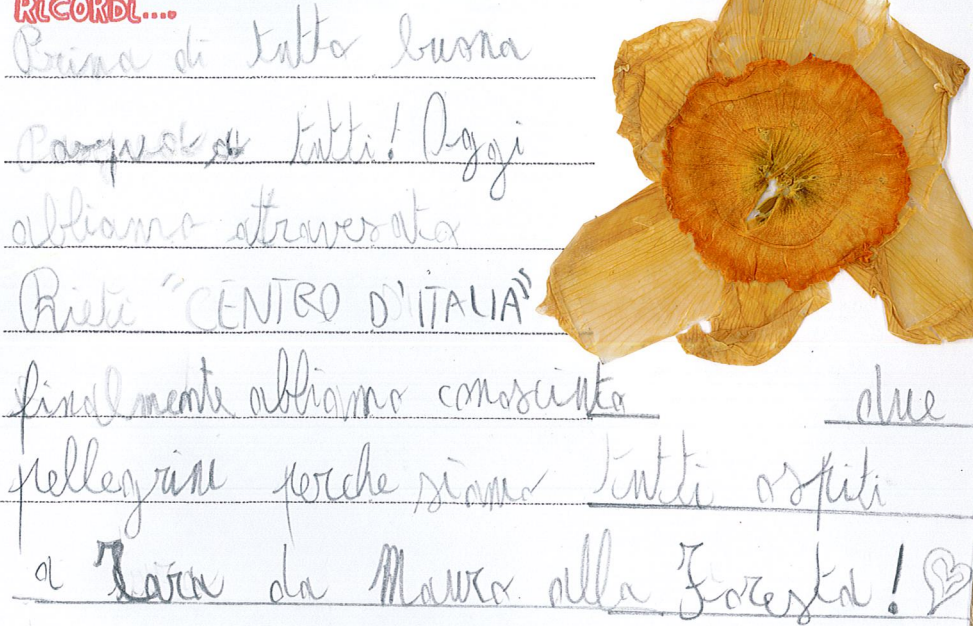 RICORDI....
Prima di tutto buona
Pasqua a tutti! Oggi
abbiamo attraversato
Rieti "CENTRO D'ITALIA"
finalmente abbiamo conosciuto due
pellegrini perche siamo tutti ospiti
a casa da Mauro alla Foresta!